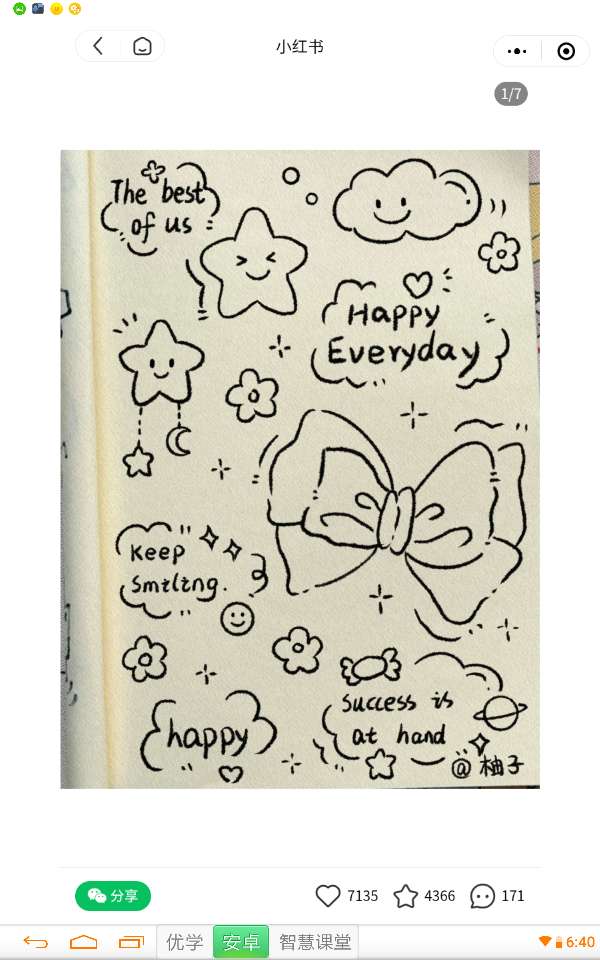 小红书
1/7
The best
of us
Happy
Everyday
Keep
Smiling.
Success is
at hand
happy
@柚子
分享
7135
4366
171
优学
安卓
智慧课堂
6:40